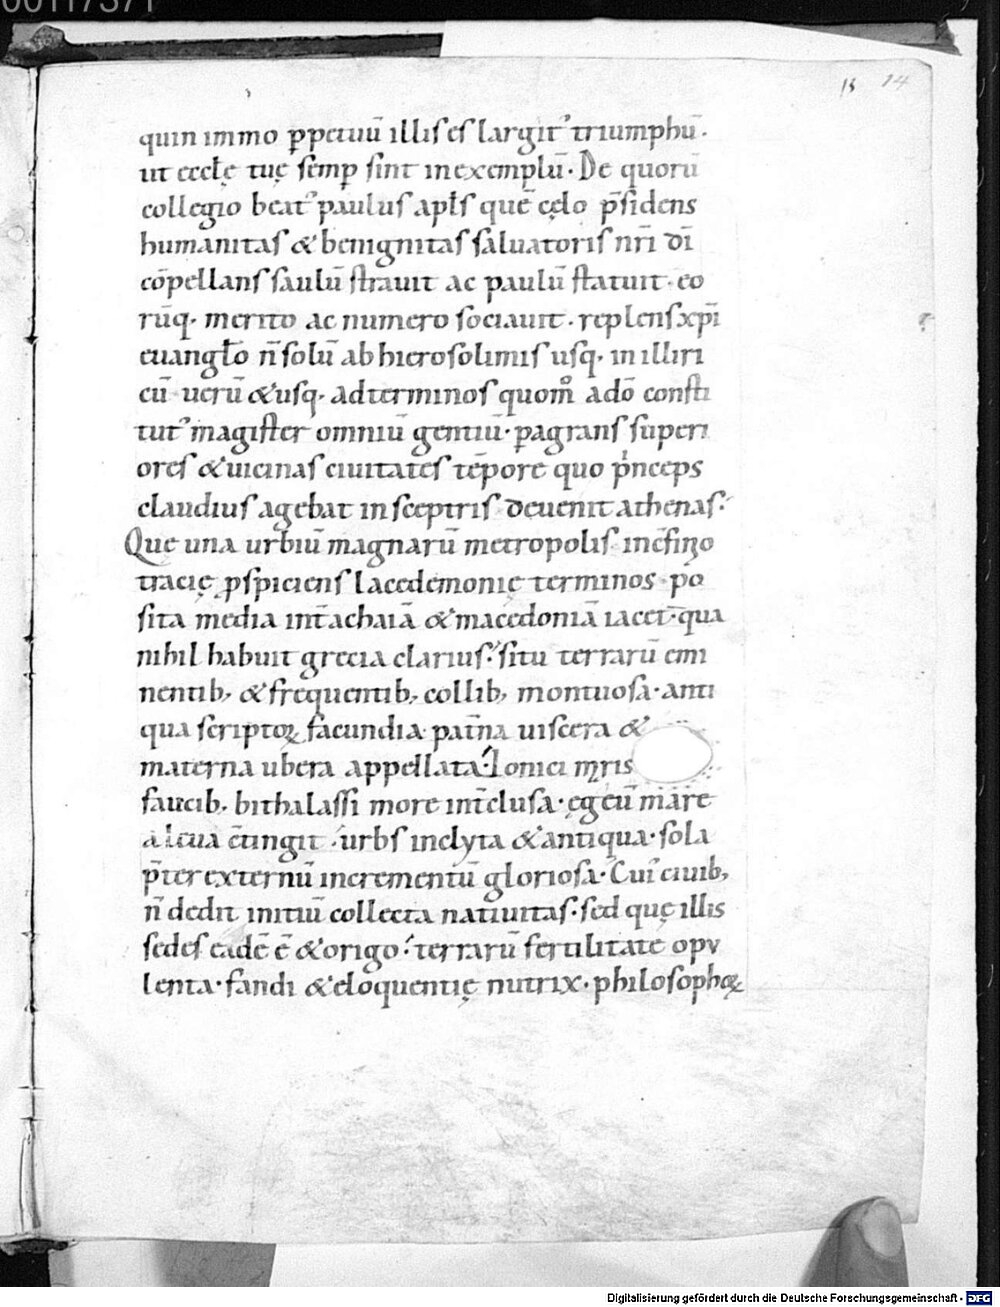 00117371
13 14
quin immo ꝑpetuū illis es largitꝰ triumphū.
ut eccłę tuę semꝑ sint in exemplū. De quorū
collegio beatꝰ paulus apłs quē cęlo p̄sidens
humanitas & benignitas saluatoris nr̄i dī
cōpellans saulū strauit ac paulū statuit. eo
rūq. merito ac numero sociauit. replens xp̄i
euangło n̄ solū ab hierosolimis usq. in illiri
cū uerū & usq. ad terminos quom̊ adō consti
tutꝰ magister omniū gentiū. ꝑagrans superi
ores & uicinas ciuitates tēpore quo p̍nceps
claudius agebat in sceptris deuenit athenas.
Que una urbiū magnarū metropolis in
tracię ꝓspiciens lacedemonię terminos po
sita media int̄ achaiā & macedoniā iacet. qua
nihil habuit grecia clarius. situ terrarū emi
nentib; & frequentib; collib; montuosa. anti
qua scriptoꝝ facundia pat̄na uiscera &
materna ubera appellata. Ionici mr̄is
faucib. bithalassi more int̄clusa. ęgeū mare
altua c̄tingit. urbs inclyta & antiqua. sola
p̄ter externū incrementū gloriosa. Cuiꝰ ciuib;
n̄ dedit initiū collecta natiuitas. sed quę illis
sedes eadē ē & origo. terrarū fertilitate opu
lenta. fandi & eloquentię nutrix. philosophoꝝ
Digitalisierung gefördert durch die Deutsche Forschungsgemeinschaft - DFG